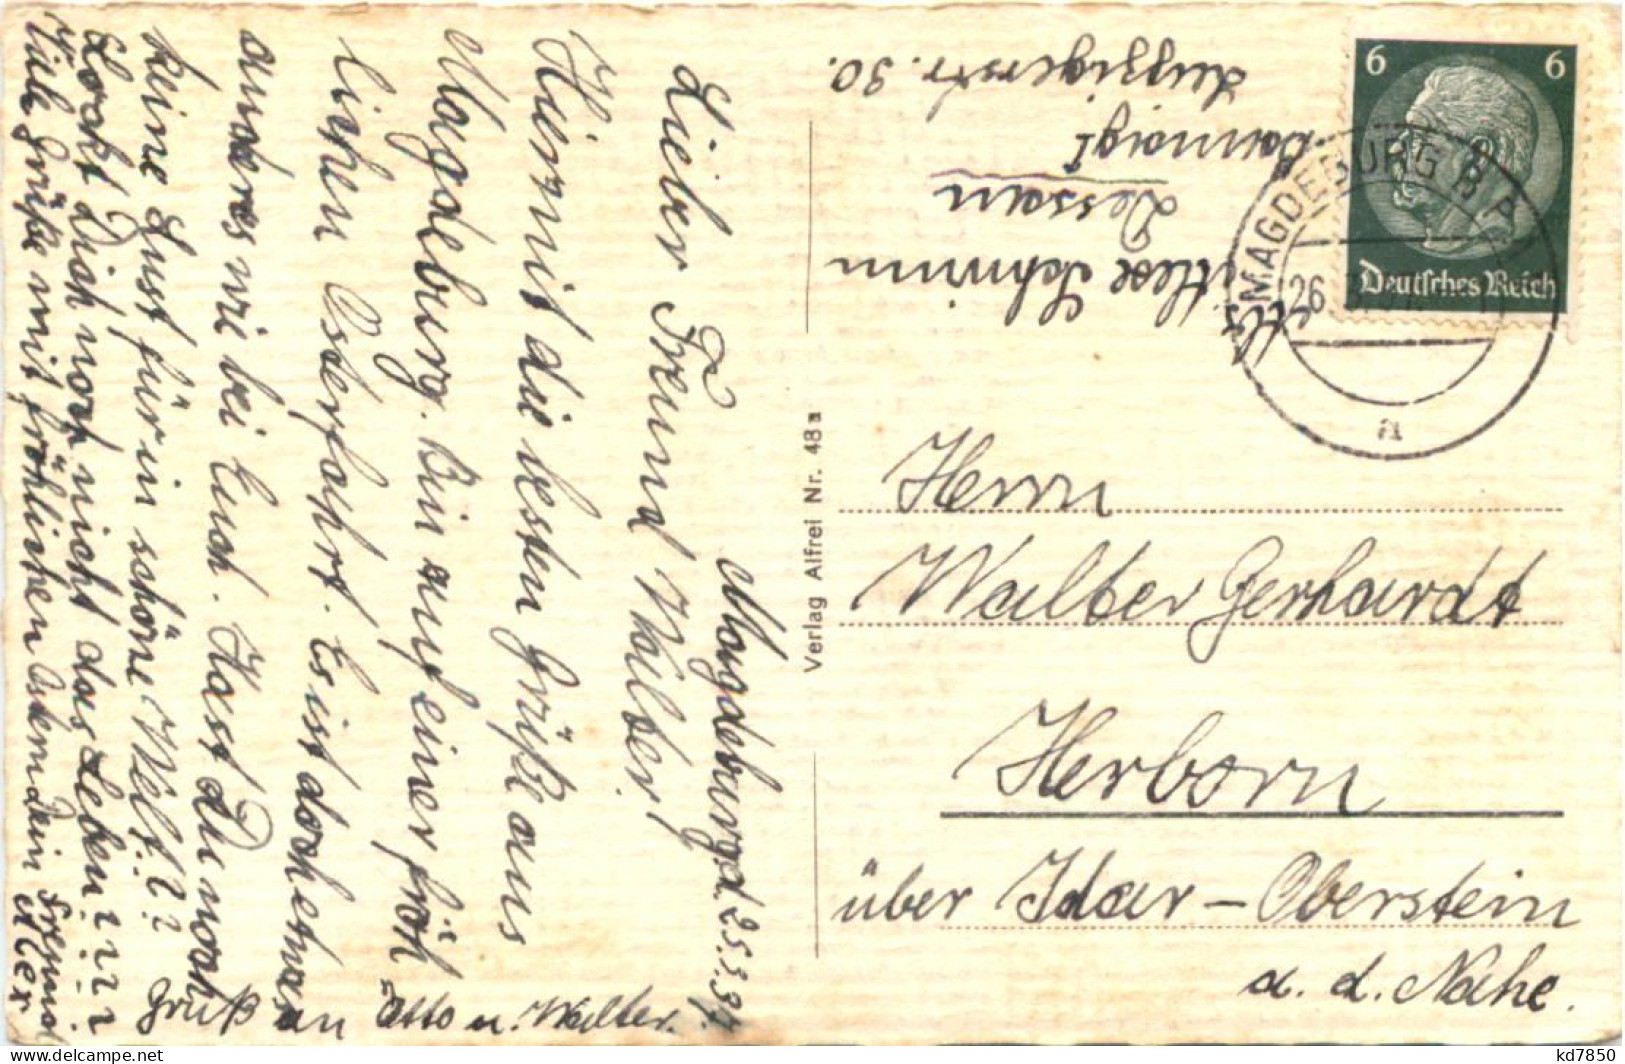 Magdeburg d. 25.3.37.
Lieber Freund Walter!
Hiermit die besten Grüße aus
Magdeburg. Bin auf einer fröh
lichen Osterfahrt. Es ist doch etwas
anderes wie bei Euch. Hast Du noch
keine Lust für in schöne Welt??
Lockt Dich noch nicht das Leben
Viele Grüße mit fröhlichen Dein Freund
Alex
Gruß an Otto u. Walter.
Abs. Alex Schwinn
Dessau
Leipzigerstr. 30.
6 6
Deutsches Reich
MAGDEBURG B A
26
a
Verlag Alfrei Nr. 48a
Herrn
Walter Gerhardt
Herborn
über Idar-Oberstein
a. d. Nahe.
kd7850